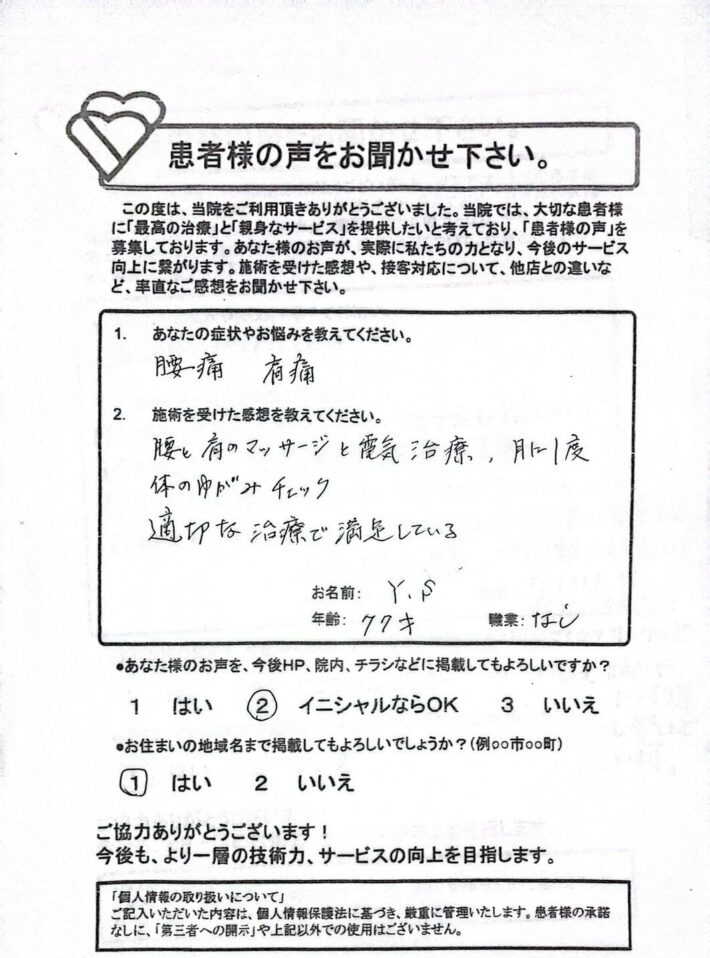 患者様の声をお聞かせ下さい。
この度は、当院をご利用頂きありがとうございました。当院では、大切な患者様
に「最高の治療」と「親身なサービス」を提供したいと考えており、「患者様の声」を
募集しております。あなた様のお声が、実際に私たちの力となり、今後のサービス
向上に繋がります。施術を受けた感想や、接客対応について、他店との違いな
ど、率直なご感想をお聞かせ下さい。
1. あなたの症状やお悩みを教えてください。
腰痛 肩痛
2. 施術を受けた感想を教えてください。
腰と肩のマッサージと電気治療、月に1度
体のゆがみチェック
適切な治療で満足している
お名前: Y.S
年齢: 77才 職業: なし
●あなた様のお声を、今後HP、院内、チラシなどに掲載してもよろしいですか?
1 はい 2 イニシャルならOK 3 いいえ
●お住まいの地域名まで掲載してもよろしいでしょうか?(例○○市○○町)
1 はい 2 いいえ
ご協力ありがとうございます!
今後も、より一層の技術力、サービスの向上を目指します。
「個人情報の取り扱いについて」
ご記入いただいた内容は、個人情報保護法に基づき、厳重に管理いたします。患者様の承諾
なしに、「第三者への開示」や上記以外での使用はございません。